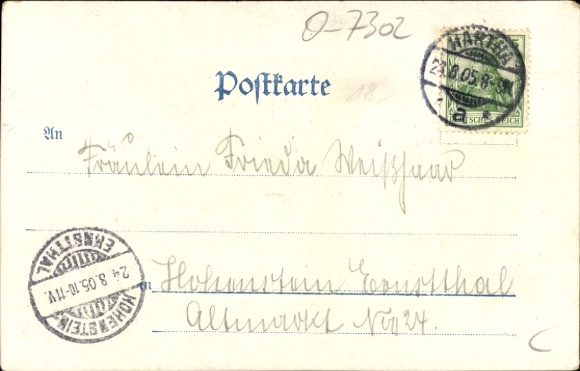 O-7302
HARTHA
24.8.05.8-9V.
a
DEUTSCHES REICH
Postkarte
18.
An
Fräulein Frieda Weißhaar
in Hohenstein Ernstthal
Altmarkt No 24.
HOHENSTEIN-
ERNSTTHAL
24.8.05.10-11V.